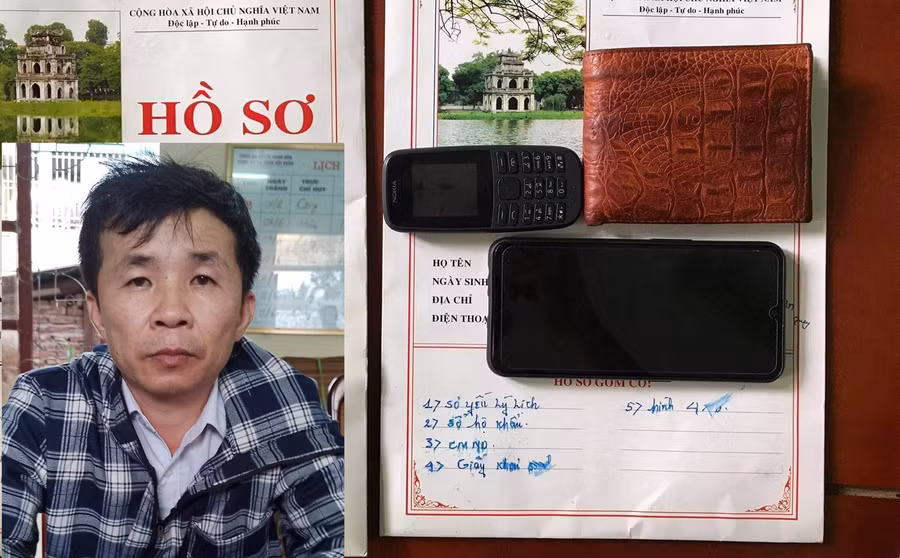 CỘNG HÒA XÃ HỘI CHỦ NGHĨA VIỆT NAM
Độc lập - Tự do - Hạnh phúc
HỒ SƠ
LỊCH
NGÀY THÁNG
TRỰC CHỈ HUY
HỘI CHỦ NGHĨA VIỆT NAM
Độc lập - Tự do - Hạnh phúc
NOKIA
HỌ TÊN
NGÀY SINH
ĐỊA CHỈ
ĐIỆN THOẠ
HỒ SƠ GỒM CÓ:
1> sơ yếu lý lịch
2> sổ hộ khẩu.
3> CMND.
4> Giấy khai
5> hình 4